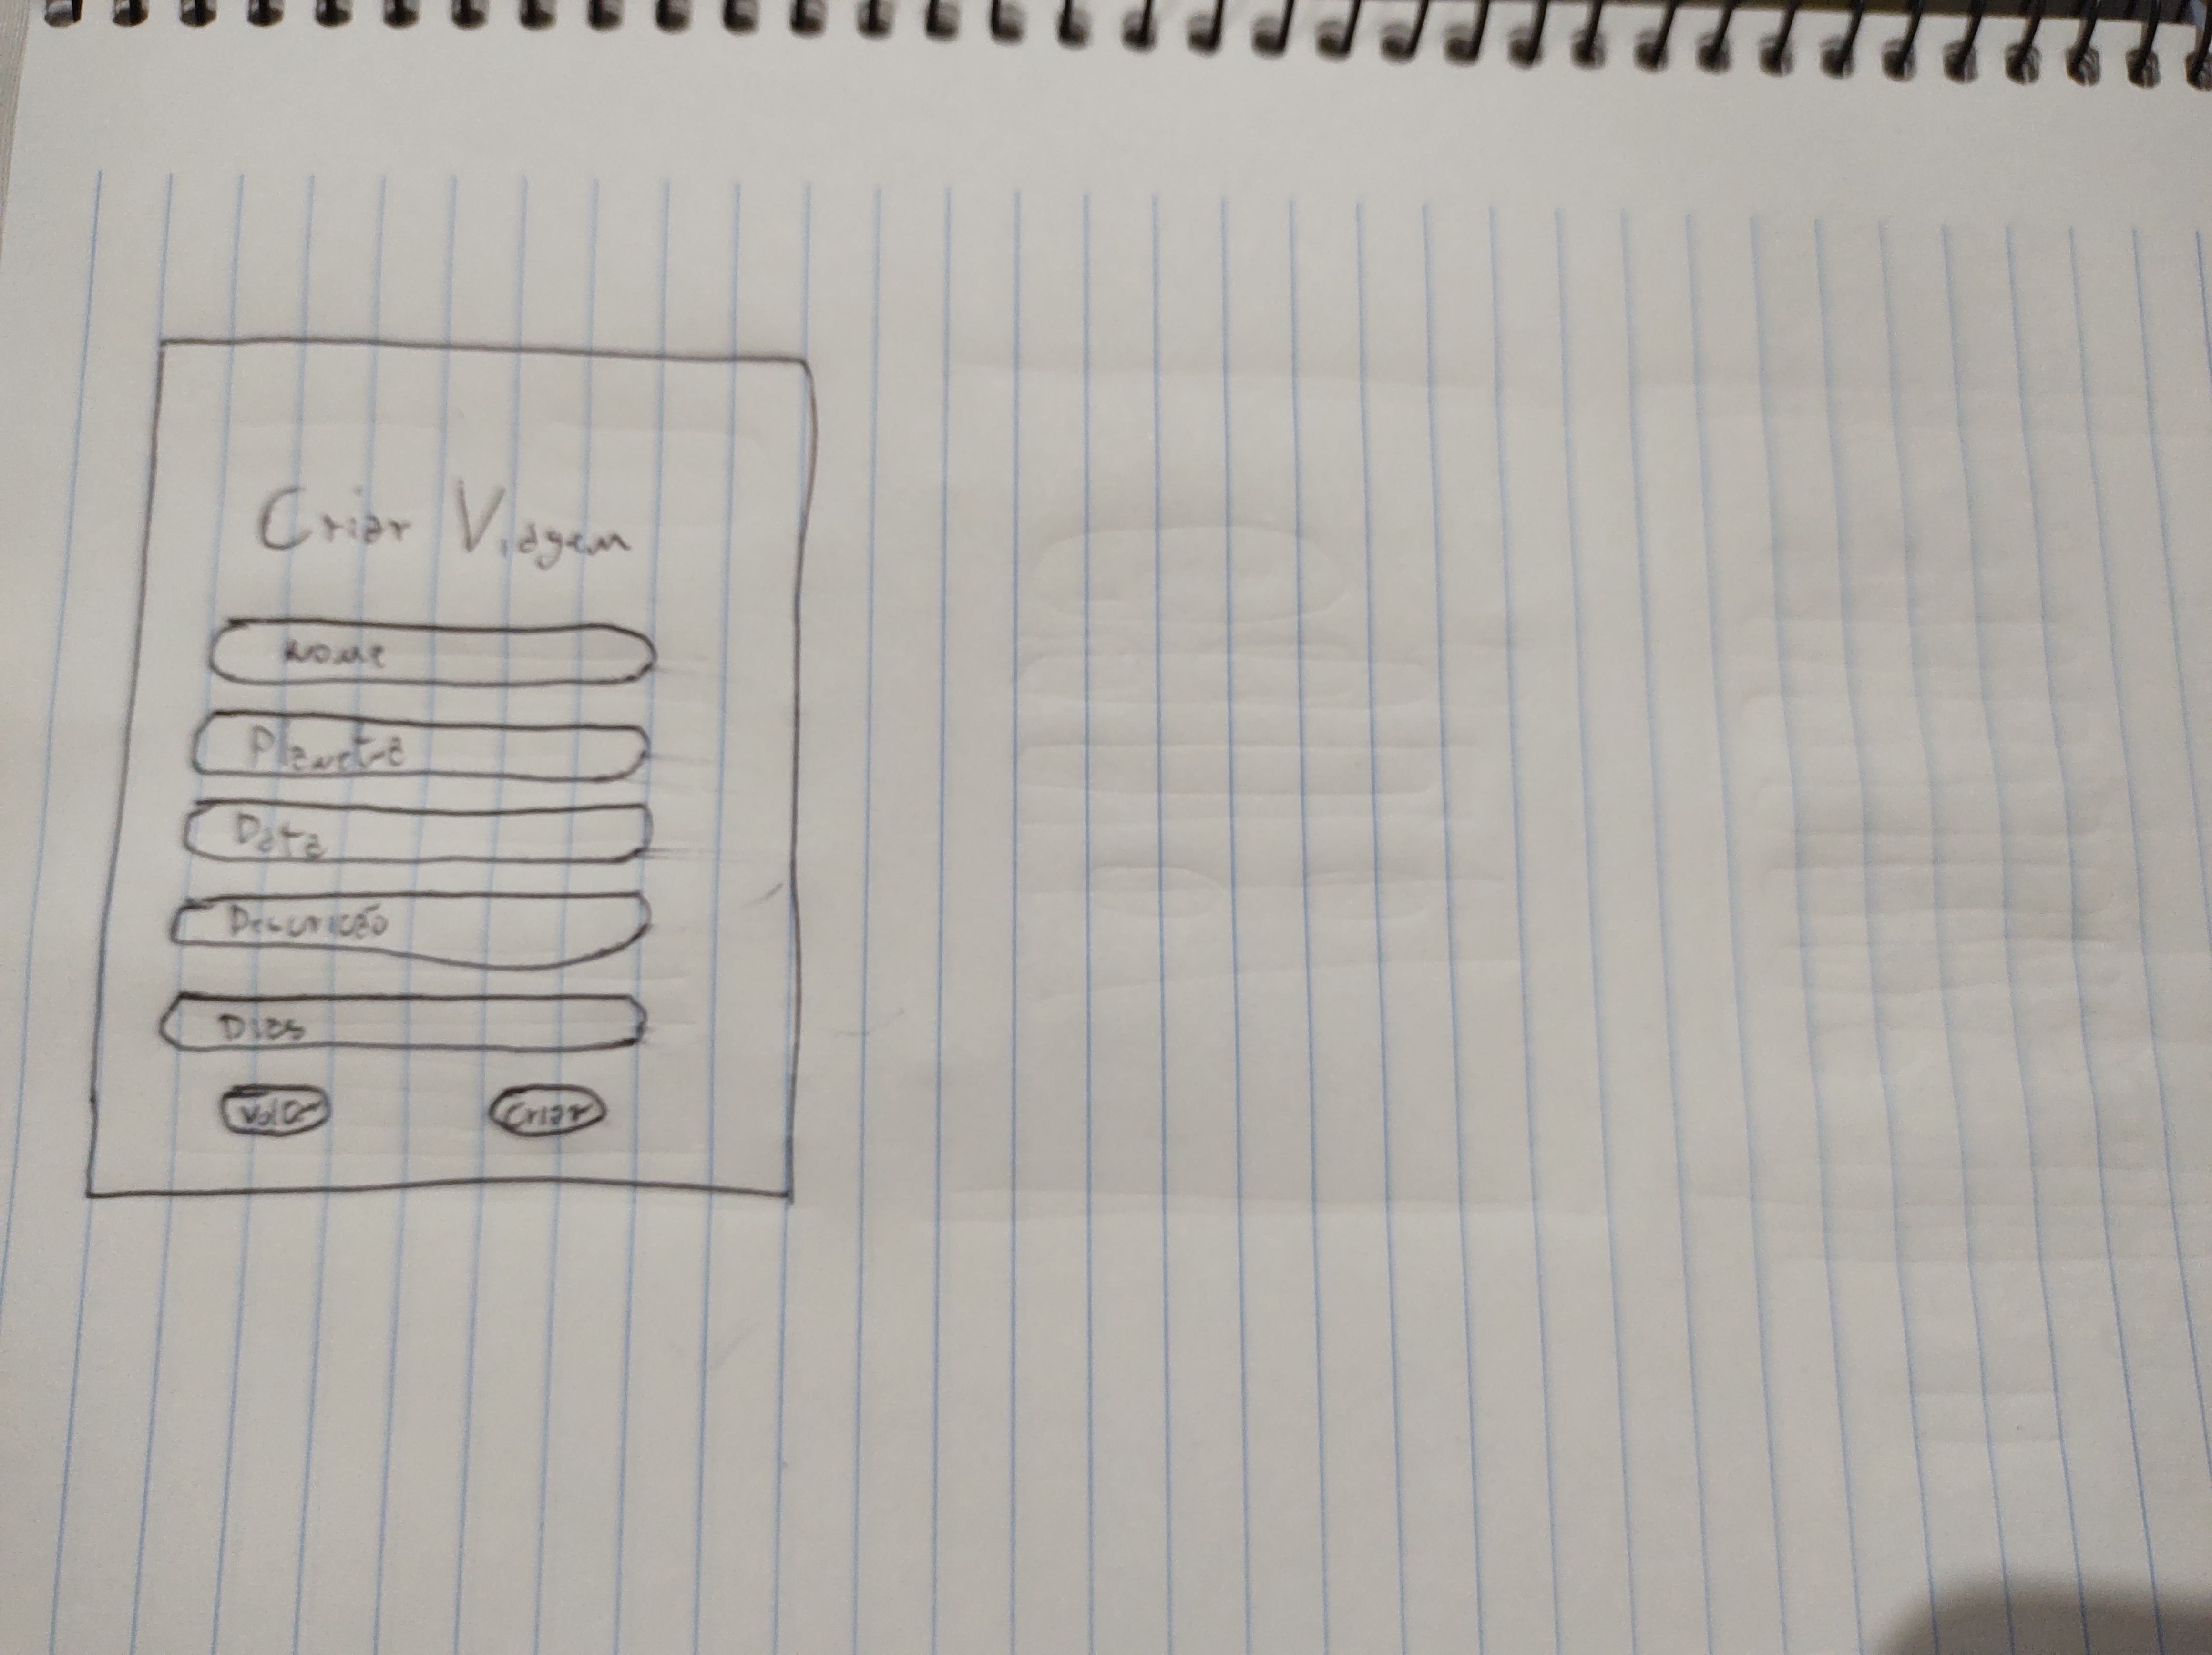 Criar Viagem
Nome
Planeta
Data
Descrição
Dias
Voltar Criar